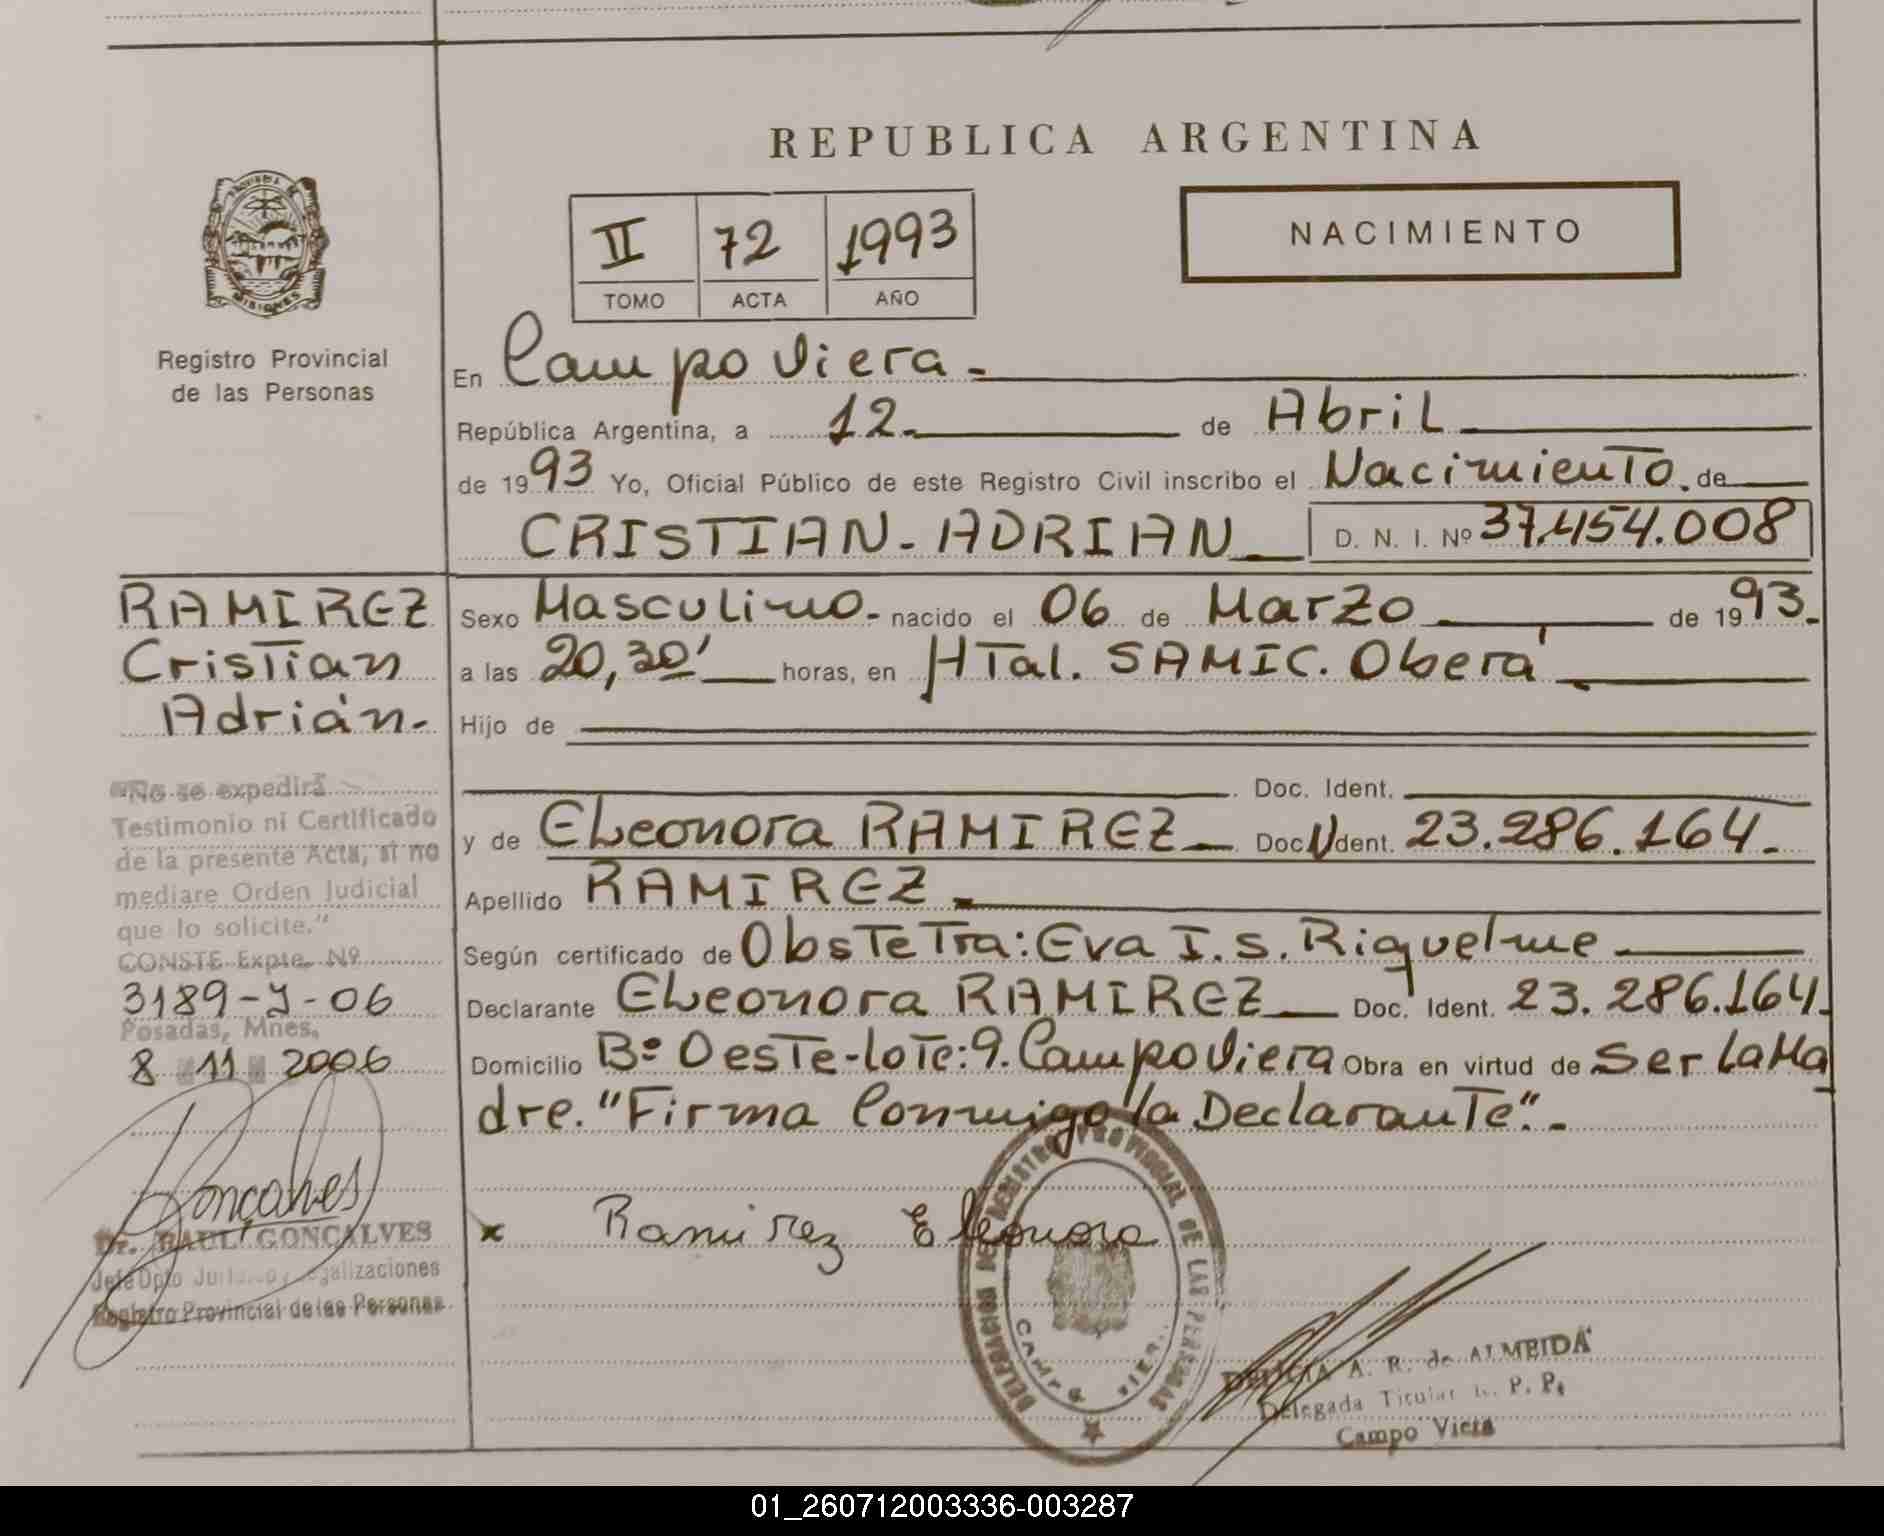 REPUBLICA ARGENTINA
NACIMIENTO
II 72 1993
TOMO ACTA AÑO
PROVINCIA DE
MISIONES
Registro Provincial
de las Personas
En Campo Viera.
República Argentina, a 12. de Abril
de 1993 Yo, Oficial Público de este Registro Civil inscribo el Nacimiento. de
CRISTIAN - ADRIAN D. N. I. Nº 37.454.008
RAMIREZ
Cristian
Adrián.-
Sexo Masculino.- nacido el 06 de Marzo de 1993.-
a las 20,30' horas, en HTal. SAMIC. Oberá
Hijo de
Doc. Ident.
y de Eleonora RAMIREZ Doc. Ident. 23.286.164.-
Apellido RAMIREZ.
Según certificado de Obstetra: Eva I. S. Riquelme
Declarante Eleonora RAMIREZ Doc. Ident. 23.286.164.
Domicilio Bº Oeste-lote: 9. Campo Viera Obra en virtud de Ser la Ma
dre. "Firma Conmigo la Declarante".-
x Ramirez Eleonora
"No se expedirá
Testimonio ni Certificado
de la presente Acta, si no
mediare Orden Judicial
que lo solicite."
CONSTE Expte. Nº
3189-J-06
Posadas, Mnes,
8 11 2006
Gonçalves
Dr. RAUL GONÇALVES
Jefe Dpto Legalizaciones
Registro Provincial de las Personas
DELEGACION DEL REGISTRO PROVINCIAL DE LAS PERSONAS
CAMPO VIERA
A. R. de ALMEIDA
Delegada Titular R. P. P.
Campo Viera
01_260712003336-003287